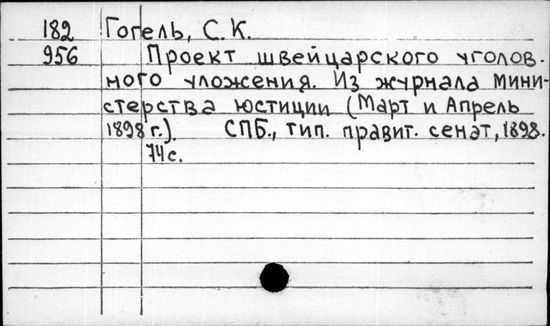 182 Гогель, С. К.
956 Проект швейцарского уголов-
ного уложения. Из журнала Мини-
стерства юстиции (Март и Апрель
1898 г.). СПб., тип. правит. сенат, 1898.
74 с.